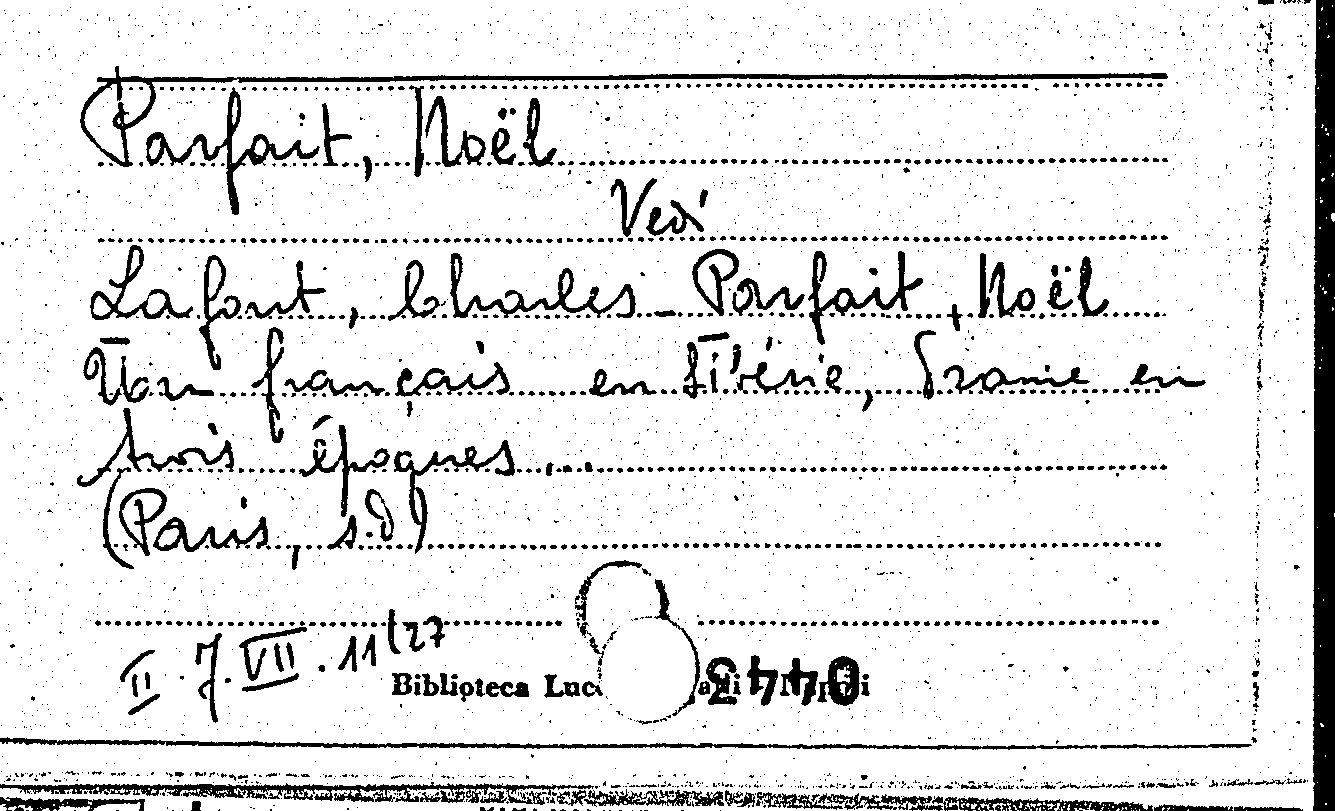 Parfait, Noël
Vedi
Lafont, Charles - Parfait, Noël
Un français en Sibérie, Drame en
trois époques...
(Paris, s.d)
II. J. VII. 11/27
Biblioteca